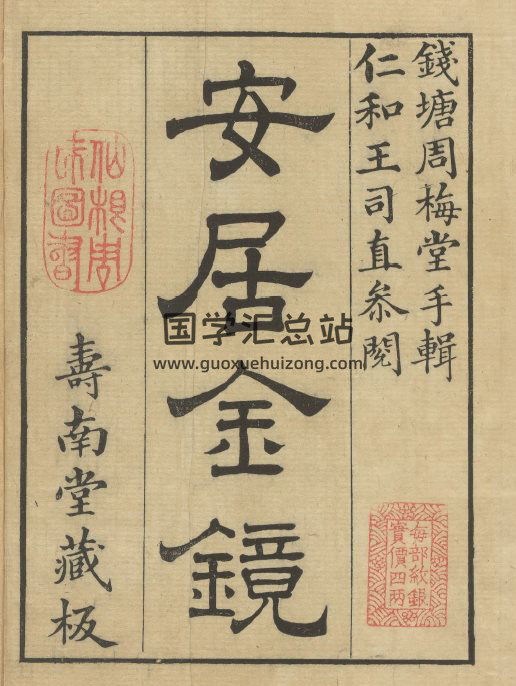 錢塘周梅堂手輯
仁和王司直叅閱
安居金鏡
壽南堂藏板
每部紋銀
實價四兩
国学汇总站
www.guoxuehuizong.com